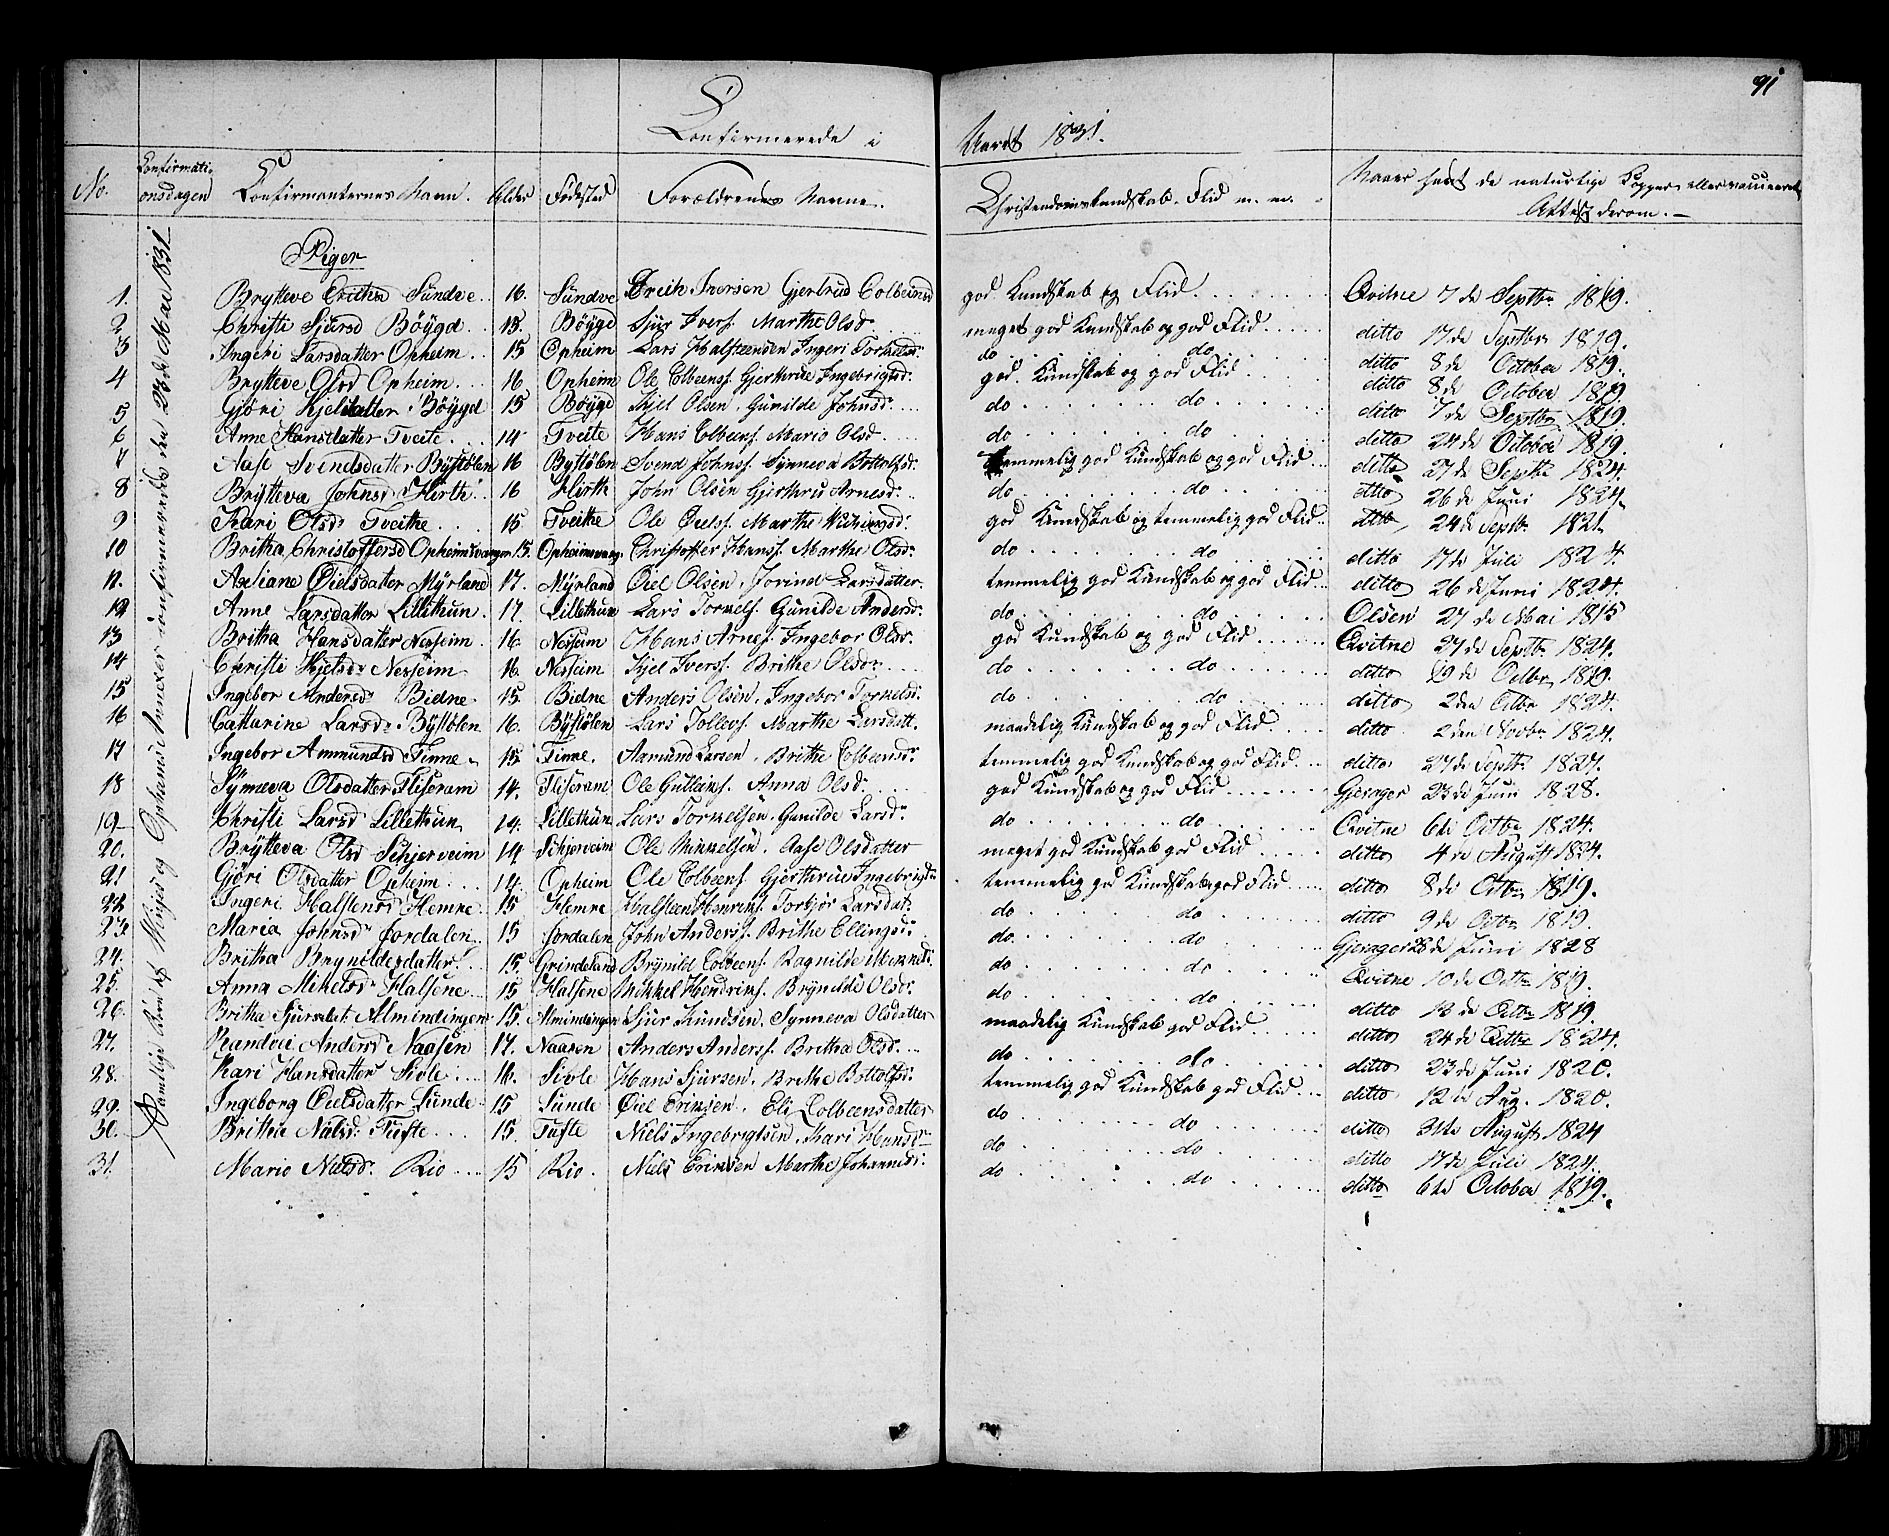 91
Confirmerede i Aaret 1831.
No. Confirmationsdagen Confirmanternes Navn. Alder Fødested Forældrenes Navne. Christendomskundskab. Flid m. m. Naar havt de naturlige Kopper eller vaccineret Attest derom.
Samtlige Børn af Vinjes og Opheims Annexer confirmerede den 23de Mai 1831
Piger
1. Brytteve Erichsd Sundve 16. Sundve Erich Iversen Gjertrud Colbeinsd god Kundskab og Flid Qvitne 7de Septbr 1819.
2 Christi Sjursd Bøygd 15. Bøygd Sjur Ivers. Marthe Olsdr meget god Kundskab og god Flid ditto 17de Septbr 1819.
3 Ingeri Larsdatter Opheim 15 Opheim Lars Halsteensen Ingeri Torkelsdr do do ditto 8de October 1819.
4 Brytteve Olsd Opheim 16 Opheim Ole Colbeens. Gjerthrue Ingebrigtsdr god Kundskab og god Flid ditto 8de October 1819.
5 Gjøri Kjelsdatter Bøygd 15 Bøygd Kjel Olsen. Gunilde Johnsd do do ditto 7de Septbr 1819.
6 Anne Hansdatter Tveite 14 Tveite Hans Colbeens. Mario Olsd do do ditto 24de October 1819.
7 Aase Svendsdatter Bystølen 16 Bystølen Svend Johns. Synneva Bottolfsd temmelig god Kundskab og god Flid ditto 27de Septbr 1824.
8 Brytteva Johnsd Hirth 16 Hirth John Olsen Gjerthru Arnesdr do do ditto 26de Juni 1824.
9 Kari Olsdr Tveithe 15 Tveithe Ole Oiels. Marthe god Kundskab og temmelig god Flid ditto 24de Septbr 1821
10 Britha Christoffersd Opheimsvangen 15. Opheimsvang. Christoffer Hans. Marthe Olsdr do do ditto 17de Juli 1824.
11. Axliane Oielsdatter Myrland 17. Myrland Oiel Olsen. Jorind Larsdatter temmelig god Kundskab og god Flid ditto 26de Juni 1824.
12 Anne Larsdatter Lillethun 17. Lillethun Lars Torkels. Gunilde Andersdr do do Olsen 27de Mai 1815
13 Britha Hansdatter Nesheim 16. Nesheim Hans Arnes. Ingebor Olsdr god Kundskab og god Flid Qvitne 27de Septbr 1824.
14 Christi Kjelsdr Nesheim 16. Nesheim Kjel Ivers. Brithe Olsdr do do ditto 19de Octbr 1819.
15 Ingebor Andersdr Bidne 15. Bidne Anders Olsen. Ingebor Torkelsd do do ditto 2den Octbr 1824.
16 Catharine Larsdr Bystølen 16. Bystølen Lars Tollevs. Marthe Larsdatt. maadelig Kundskab og god Flid ditto 2den Novbr 1824.
17 Ingebor Ammundsd Finne 15. Finne. Aamund Larsen. Brithe Colbeensdr temmelig god Kundskab og god Flid. ditto 27de Septbr 1824.
18 Synneva Olsdatter Fliseram 14. Fliseram Ole Gulleins. Anna Olsd. god Kundskab og god Flid Gjerager 23de Juni 1828.
19 Christi Larsd Lillethun 14. Lillethun Lars Torkelsen. Gunilde Larsdr do do Qvitne 6te Octbr 1824.
20. Brytteva Olsd Schjerveim 14 Schjerveim Ole Mikkelsen. Aase Olsdatter meget god Kundskab god Flid ditto 4de August 1824.
21 Gjøri Olsdatter Opheim 14. Opheim Ole Colbeens. Gjerthrue Ingebrigtsdr temmelig god Kundskab god Flid ditto 8de Octbr 1819.
22 Ingeri Halstensd Hemre 15 Hemre Halsteen Henriks. Torbjør Larsdatr do do ditto 9de Octbr 1819.
23 Maria Johnsdr Jordalen 15 Jordalen John Anders. Brithe Ellingsdr do do Gjerager 28de Juni 1828
24. Britha Brynildsdatter 15. Grindeland Brynild Colbeens. Ragnilde do do Qvitne 10de Octbr 1819.
25. Anna Mikelsdr Halsene 15 Halsene Mikkel Hendriks. Brynilde Olsdr do do ditto 13de Octbr 1819.
26. Britha Sjursdat. Almindingen 15. Almindingen Sjur Knudsen. Synneva Olsdatter maadelig Kundskab god Flid ditto 24de Octbr 1824.
27. Randvei Andersd Naasen 17. Naasen Anders Anders. Britha Olsd do do ditto 23de Juni 1820.
28. Kari Hansdatter Sivle 16. Sivle Hans Sjursen. Brethe Bottolfsdr temmelig god Kundskab god Flid ditto 12de Aug. 1820.
29. Ingeborg Oielsdatter Sunde 15 Sunde Oiel Eriksen. Eli Colbeensdatter do do ditto 31te August 1824
30. Britha Nilsdr Tufte 15. Tufte Niels Ingebrigtsen. Kari Hansdr do do ditto 17de Juli 1824.
31. Mario Nielsdr Rio 15 Rio. Niels Eriksen Marthe Johannesdr do do ditto 6te October 1819.